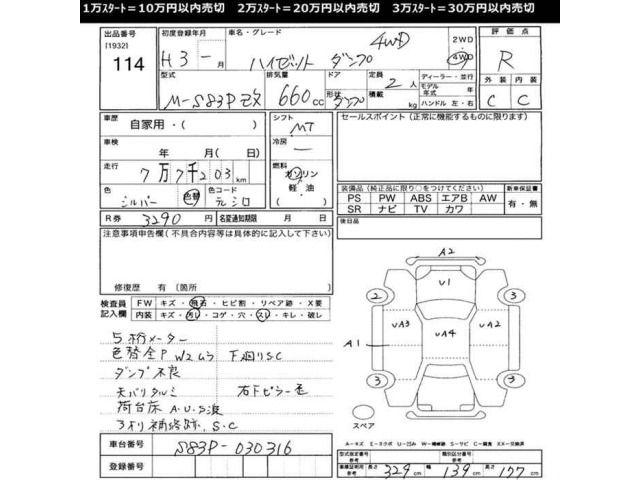 1万スタート=10万円以内売切　2万スタート=20万円以内売切　3万スタート=30万円以内売切
出品番号 初度登録年月 車名・グレード 評価点
[1932] H3 - 月 ハイゼット ダンプ 4WD 2WD・4WD R
114
型式 排気量 ドア 定員 ディーラー・並行 外装 内装
M-S83P改 660cc 形状 ダンプ 2人 積載 kg モデル年式 年 ハンドル 左・右 C C
車歴 シフト セールスポイント (正常に機能するものに限ります)
自家用・( ) MT
車検 冷房
年 月( 日) —
走行 燃料
7万7千203km ガソリン・軽油
色 色替 色コード
シルバー 元シロ
装備品(純正品に限り○をつけてください) 新車保証書
PS PW ABS エアB AW 有・無
SR ナビ TV カワ
R券 3290円 名変通知期限 月 日
後日品
注意事項申告欄(不具合内容等は具体的に記入して下さい)
修復歴 有 [箇所 ]
検査員記入欄 FW キズ・飛石・ヒビ割・リペア跡・X要
内装 キズ・汚レ・コゲ・穴・スレ・キレ・破レ
5桁メーター
色替全P W2ムラ 下廻りSC
ダンプ不良
天バリタルミ 右下ピラー
荷台床 A.U.S
補修跡.S.C
車台番号 S83P-030316
登録番号
A2
U1
2 3
UA3 UA4 UA2
A1
3 3
スペア
A-キズ E-エクボ U-凹み W-補修跡 S-サビ C-腐食 XX-交換済
型式指定番号 参考 類別区分番号 参考
車検証明用 参考 長さ 329cm 幅 139cm 高さ 177cm